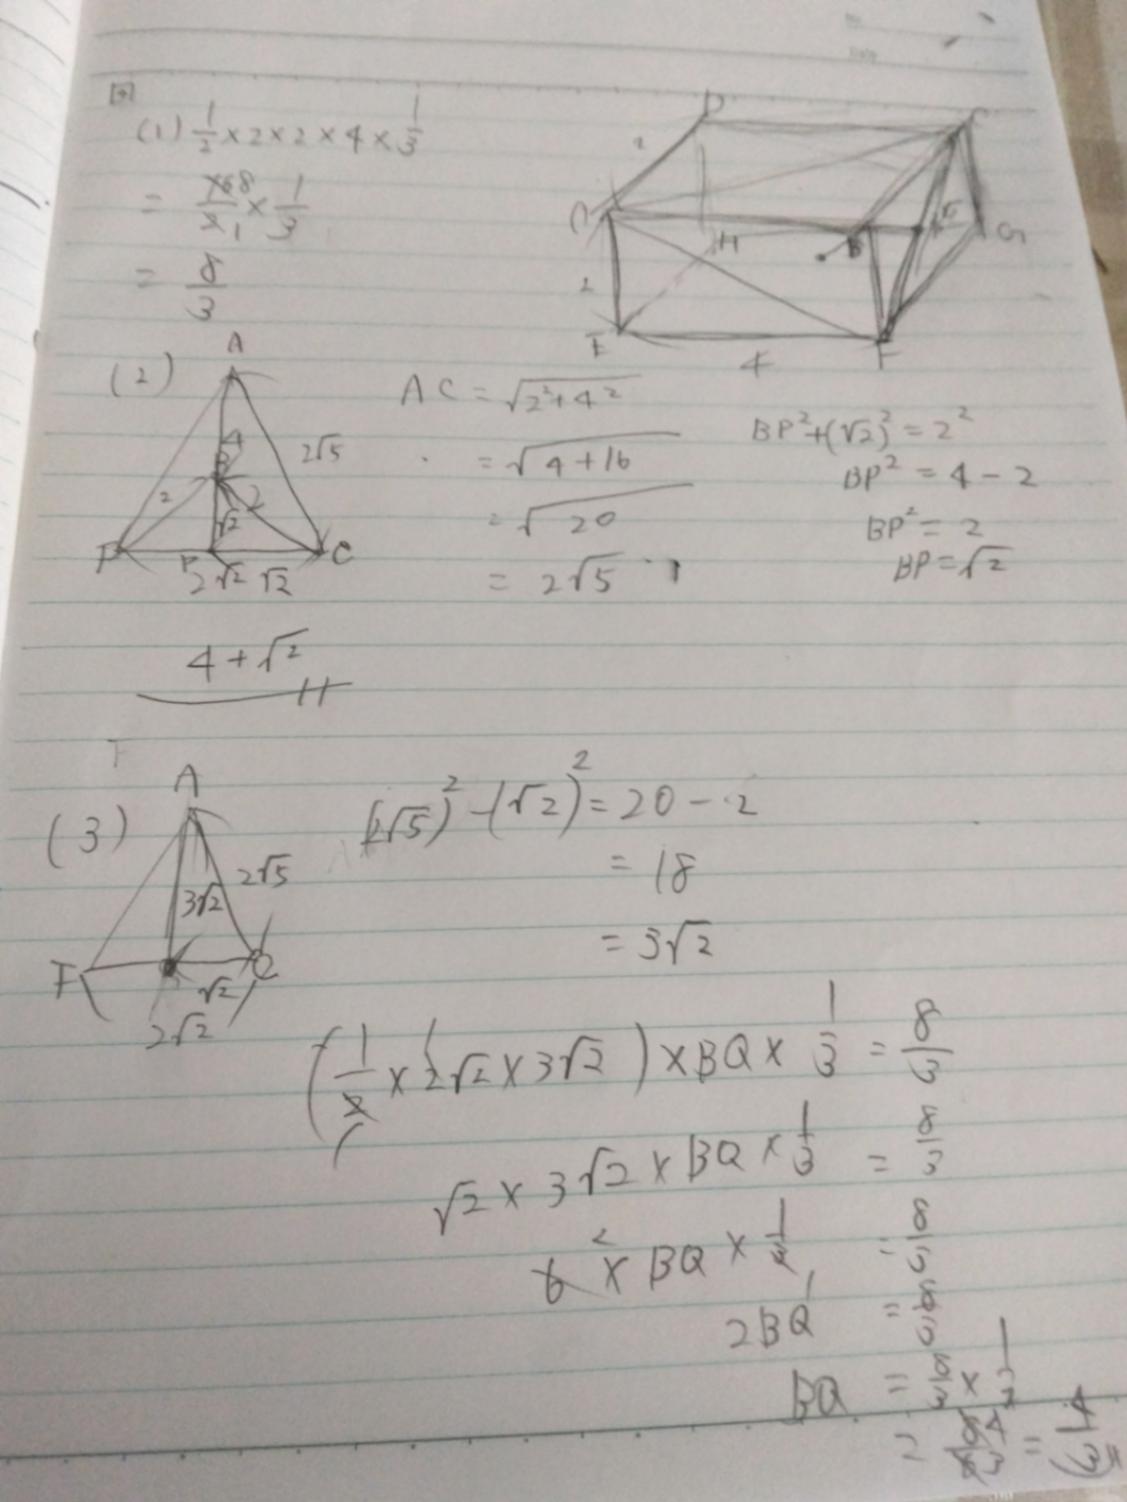 (1) 1/2 × 2 × 2 × 4 × 1/3
= 168/21 × 1/3
= 8/3
D
C
2
A
B
H
G
2
E
4
F
(2)
A
4
2√5
B
2
2
√2
F
P
C
2√2 √2
AC = √2²+4²
= √4+16
= √20
= 2√5
BP²+(√2)² = 2²
BP² = 4 - 2
BP² = 2
BP = √2
4 + √2
(3)
A
2√5
3√2
F
C
√2
2√2
(2√5)² - (√2)² = 20 - 2
= 18
= 3√2
(1/2 × 2√2 × 3√2) × BQ × 1/3 = 8/3
√2 × 3√2 × BQ × 1/3 = 8/3
6 × BQ × 1/3 = 8/3
2BQ = 8/3
BQ = 8/3 × 1/2
= 84/63 = 4/3